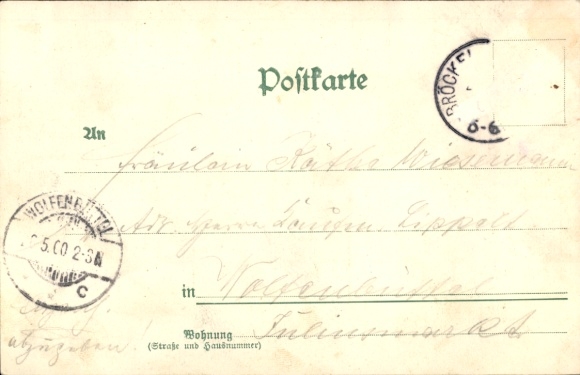 Postkarte
BRÖCKEL
6-6
An
Fräulein Käthe Wiesemann
Adr. Herrn Lippelt
WOLFENBÜTTEL
5.00 2-3N
C
in Wolfenbüttel
Wohnung
(Straße und Hausnummer)
Juliusmarkt
abzugeben!